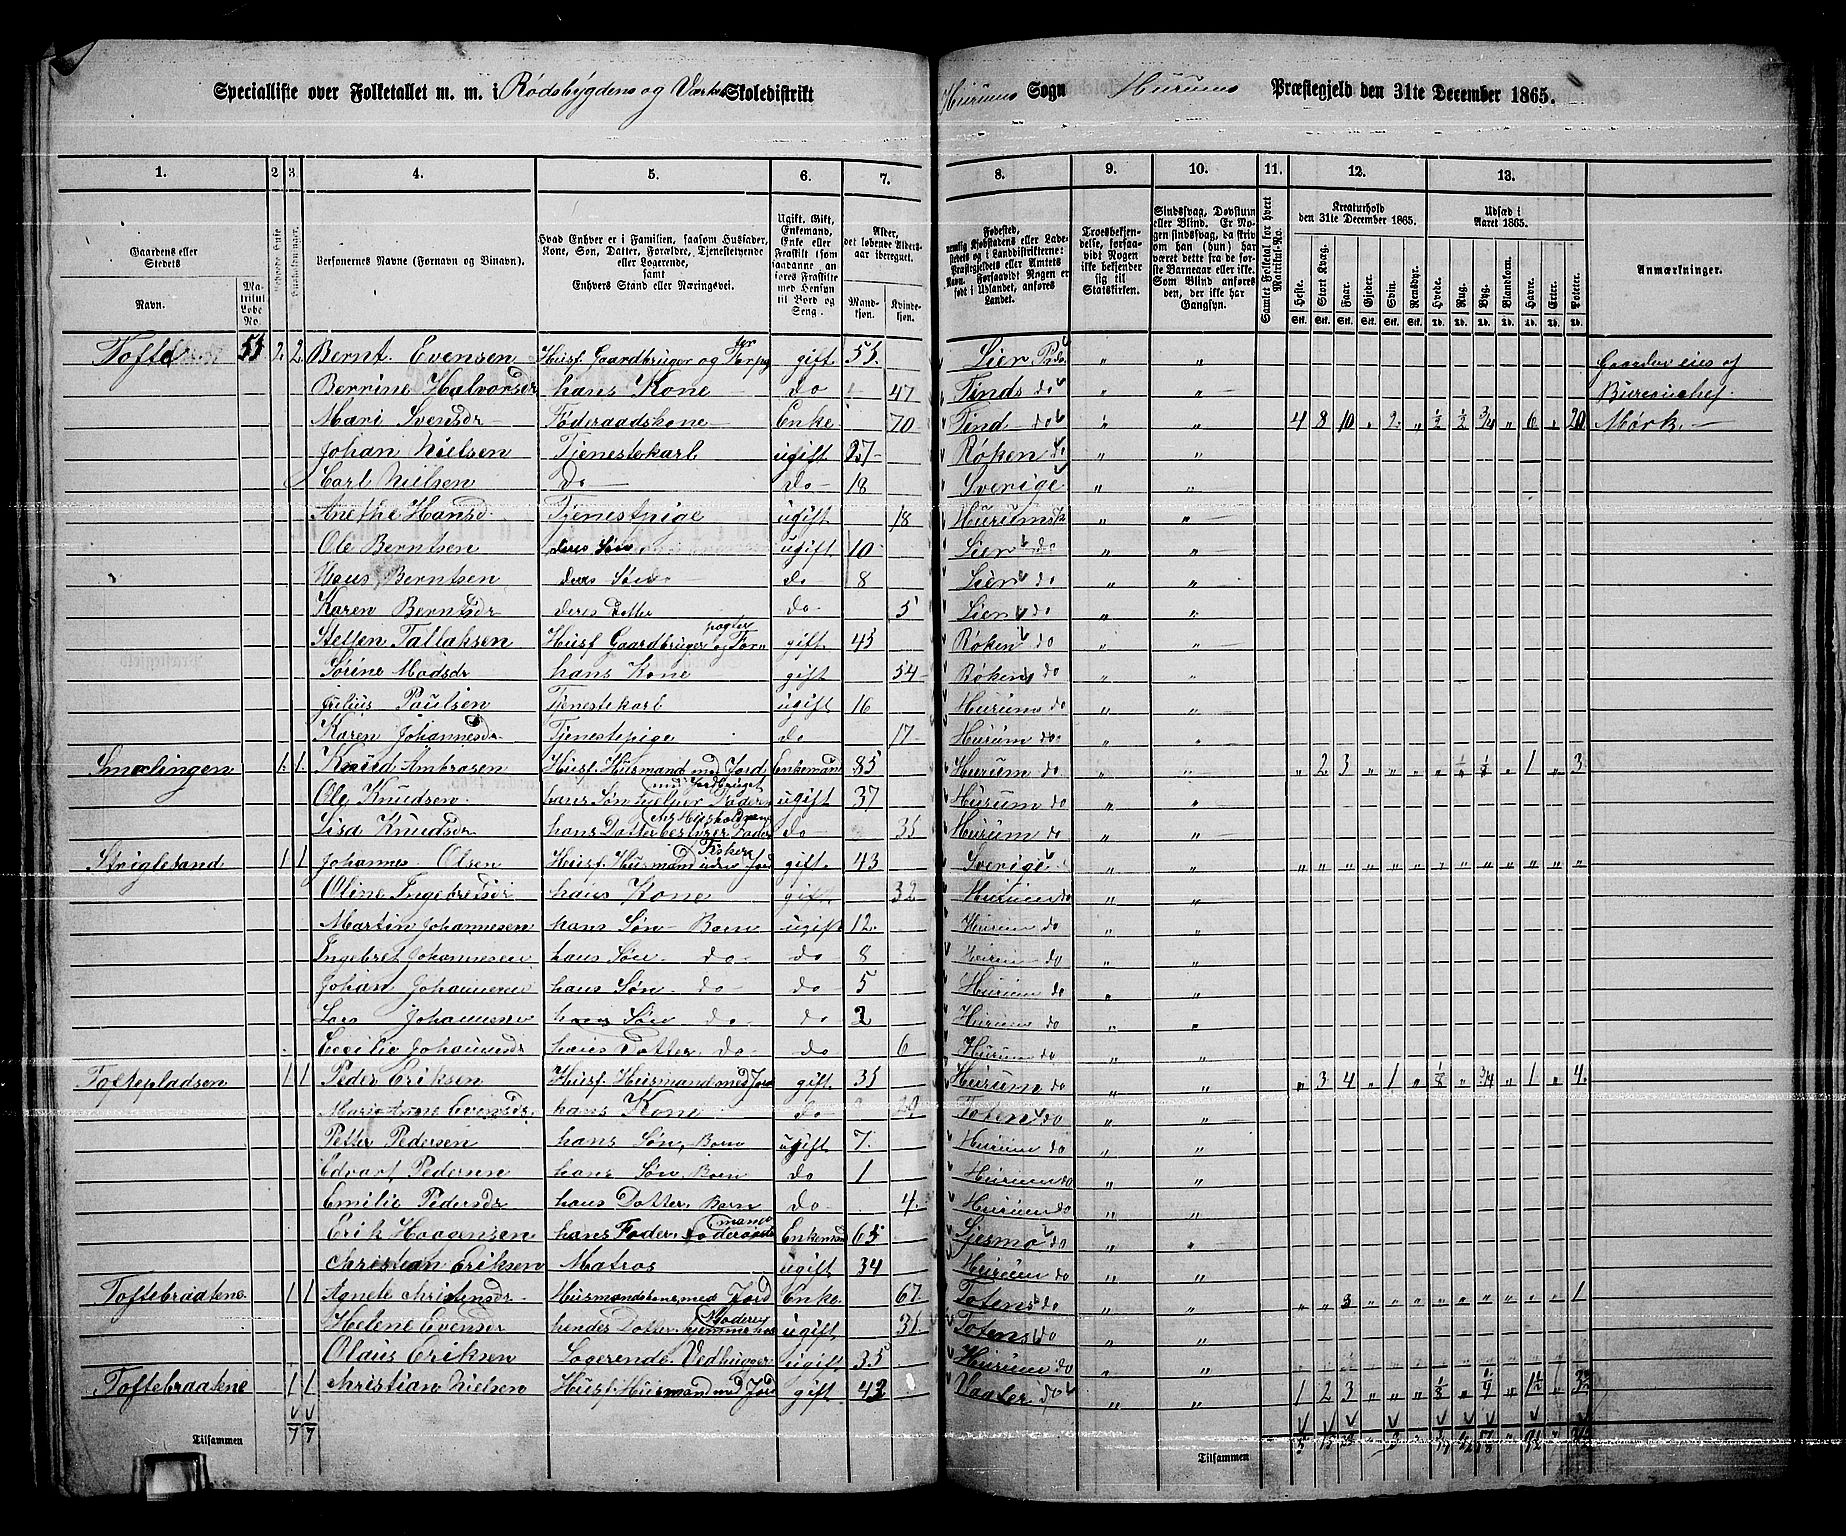 Specialliste over Folketallet m. m. i Rødsbygdens og Værkets Skoledistrikt Hurums Sogn Hurums Præstegjeld den 31te December 1865.
1. 2. 3. 4. 5. 6. 7. 8. 9. 10. 11. 12. 13.
Gaardens eller Stedets Navn. Matrikul Løbe No.
Personernes Navne (Fornavn og Tilnavn).
Hvad Enhver er i Familien, saasom Husfader, Kone, Søn, Datter, Forældre, Tjenestetyende eller Logerende, samt Enhvers Stand eller Næringsvei.
Ugift, Gift, Enkemand, Enke eller Fraskilt
Alder, det løbende Aldersaar iberegnet. Mandkjøn. Kvindekjøn.
Fødested,
Troesbekjendelse, forsaavidt Nogen ikke bekjender sig til Statskirken.
Sindssvag, Døvstum eller Blind.
Samlet Folketal for hvert Matrikul-No.
Kreaturhold den 31te December 1865. Heste. Stort Kvæg. Faar. Gjeder. Svin. Rensdyr.
Udsæd i Aaret 1865. Hvede. Rug. Byg. Blandkorn. Havre. Erter. Poteter.
Anmærkninger.
Tofte 55 2 2 Bernt Evensen Husf. Gaardbruger og Forpagter gift 55 Lier Gaarden eies af
Berrine Halvorsdr hans Kone do 47 Tinds do Bureauchef
Mari Svensdr Føderaadskone Enke 70 Tind do " " 4 8 10 " 2 " ½ ½ ¾ " 6 " 20 Mørk
Johan Nielsen Tjenestekarl ugift 27 Røken do
Carl Nielsen Do do 18 Sverige
Anethe Hansd Tjenestpige ugift 18 Hurums
Ole Berntsen deres Søn ugift 10 Lier do
Hans Berntsen deres Søn do 8 Lier do
Karen Berntsdr deres Datter do 5 Lier do
Steffen Tallaksen Husf Gaardbruger og Forpagter gift 45 Røken do
Sørine Madsdr hans Kone gift 54 Røken do
Julius Paulsen Tjenestekarl ugift 16 Hurum do
Karen Johannesdr Tjenestepige do 17 Hurum do
Smælingen 1 1 Knud Ambrosen Husf. Husmand med Jord Enkemand 85 Hurum do " " " 2 3 " " " " 1 " 3
Ole Knudsen hans Søn hjelper Fader med Jordbruget ugift 37 Hurum do
Lisa Knudsdr hans Datter bestyrer Fader do 35 Hurum do
Striglesand 1 1 Johannes Olsen Husf. Husmand uden Jord Fisker gift 43 Sverige
Oline Ingebretsdr hans Kone gift 32 Hurum do
Martin Johannesen hans Søn Barn ugift 12 Hurum do
Ingebret Johannesen hans Søn do do 8 Hurum do
Johan Johannesen hans Søn do do 5 Hurum do
Lars Johannesen hans Søn do do 2 Hurum do
Cecilie Johannesdr hans Datter do do 6 Hurum do
Toftepladsen 1 1 Peder Eriksen Husf. Husmand med Jord gift 35 Hurum do " " " 3 4 " 1 " ⅛ " ¾ " 1 " 4
Marie Anne Evensdr hans Kone do Toten do
Petter Pedersen hans Søn, Barn ugift 7 Hurum do
Edvart Pedersen hans Søn Barn do 1 Hurum do
Emilie Pedersdr hans Datter, Barn do 4 Hurum do
Erik Haagensen hans Fader, Føderaadsmand Enkemand 65 do
Christian Eriksen Matros ugift 34 Hurum do
Toftebraatene 1 1 Agnete Christensdr Husmandskone med Jord Enke 67 Totens do " " " " 3 " " " " " " " " " 1
Helene Evensdr hendes Datter hjemme hos Moderen ugift 35 Totens do
Olaus Eriksen Logerende Vedhugger ugift 35 Hurum do
Toftebraatene 1 1 Christian Nielsen Husf. Husmand med Jord gift 42 Vaaler do " " 1 2 3 " " " ⅛ " ¼ " 1½ "
Tilsammen 7 7 Tilsammen 5 15